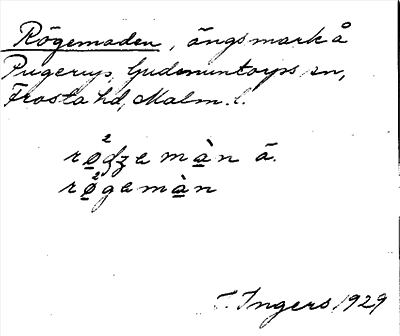 Rögemaden, ängsmark å
Pugerup, Gudmuntorps sn,
Frosta hd, Malm. l.
rø²dʒemàn ä.
rø²gemàn
I. Ingers 1929